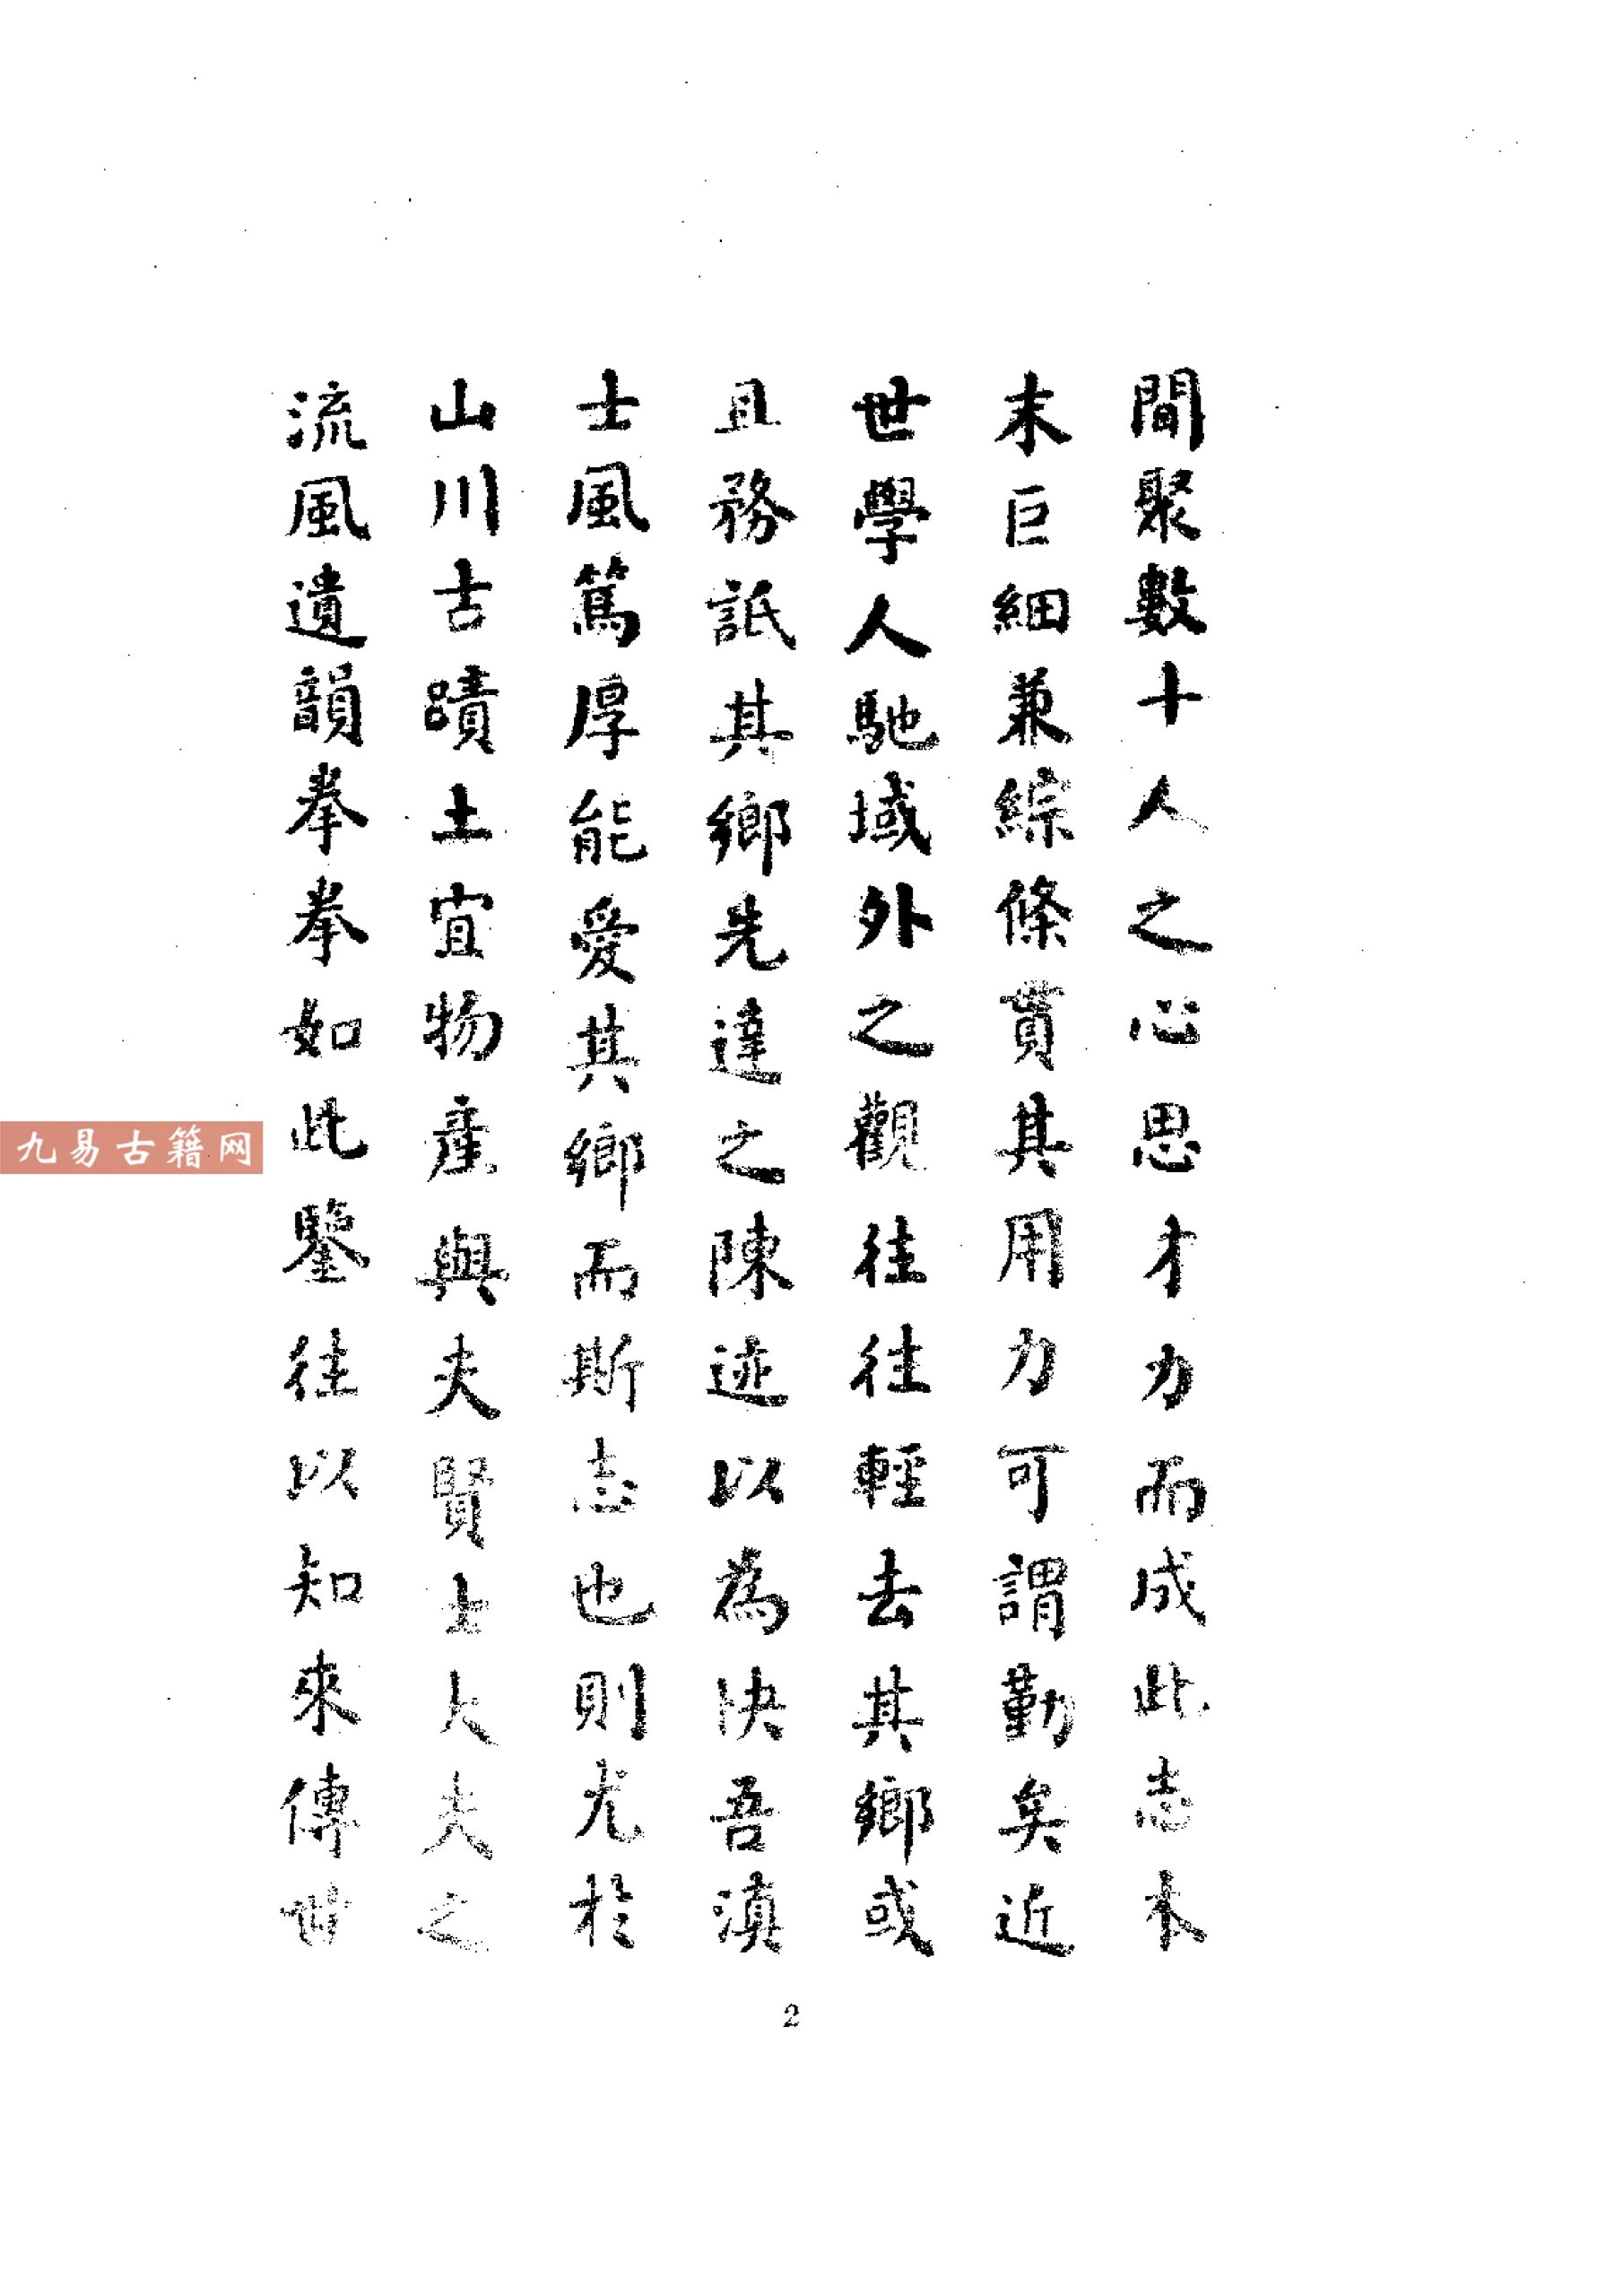 間聚數十人之心思才力而成此志本
末巨細兼綜條貫其用力可謂勤矣近
世學人馳域外之觀往往輕去其鄉或
且務詆其鄉先達之陳迹以為快吾滇
士風篤厚能愛其鄉而斯志也則尤於
山川古蹟土宜物產與夫賢士大夫之
流風遺韻拳拳如此鑒往以知來傳世
九易古籍网
2